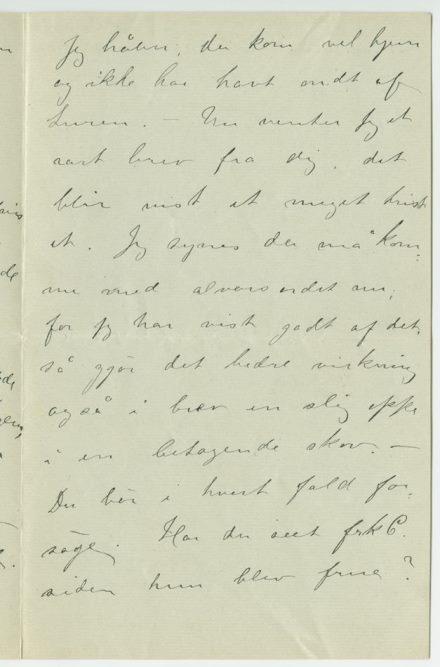 Jeg håber, du kom vel hjem
og ikke har havt ondt af
turen. – Nu venter jeg et
rart brev fra dig, det
blir vist et meget trist
et. Jeg synes du må kom-
me med alvorsordet nu,
for jeg har vist godt af det,
så gjør det bedre virkning
også i brev en slig oppe
i en betagende skov. –
Du bør i hvert fald for-
søge. Har du seet frk C.
siden hun blev frue?